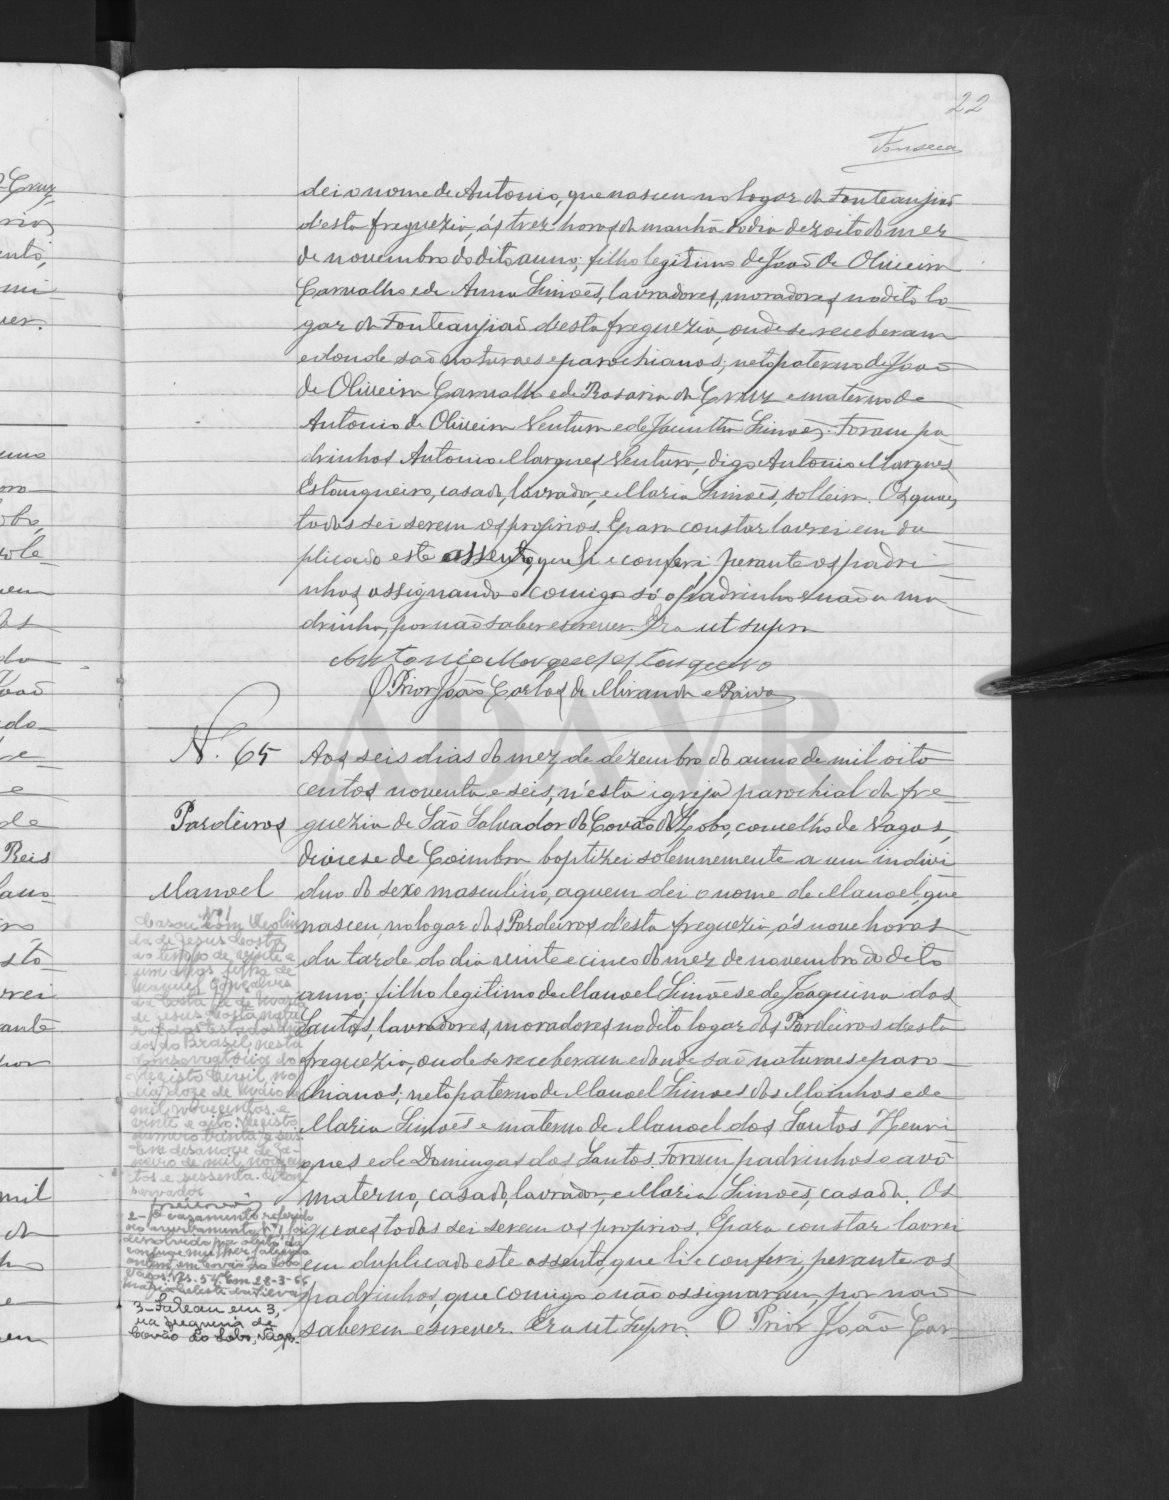 22
Fonseca
dei o nome de Antonio, que nasceu no logar da Fonteanjiaõ
d'esta freguezia, ás trez horas da manhã do dia dezoito do mez
de novembro do dito anno; filho legitimo de Joaõ de Oliveira
Carvalho e de Anna Simoẽs, lavradores, moradores no dito lo-
gar da Fonteanjiaõ d'esta freguezia, onde se receberam
e donde saõ naturaes e parochianos; neto paterno de Joaõ
de Oliveira Carvalho e de Rosaria da Cruz e materno de
Antonio de Oliveira Ventura e de Jacintha Simoẽs. Foram pa-
drinhos Antonio Marques Ventura, digo Antonio Marques
Estanqueiro, casado, lavrador, e Maria Simoẽs, solteira. Os quaes
todos sei serem os proprios. E para constar lavrei em du
plicado este assento, que li e conferi perante os padri-
nhos, assignando comigo só o padrinho e naõ a ma-
drinha, por naõ saber escrever. Era ut supra
Antonio Marques Estanqueiro
O Prior João Carlos de Miranda e Paiva
ADAVR
N. 65
Pardeiros
Manoel
Aos seis dias do mez de dezembro do anno de mil oito
centos noventa e seis, n'esta igreja parochial da fre-
guezia de São Salvador do Covão do Lobo, concelho de Vagos,
diocese de Coimbra baptizei solemnemente a um indivi
duo do sexo masculino, a quem dei o nome de Manoel, que
nasceu no logar dos Pardeiros d'esta freguezia, ás nove horas
da tarde do dia vinte e cinco do mez de novembro do dito
anno; filho legitimo de Manoel Simoẽs e de Joaquina dos
Santos, lavradores, moradores no dito logar dos Pardeiros d'esta
freguezia, onde se receberam e donde saõ naturaes e paro-
chianos; neto paterno de Manoel Simoes dos Moinhos e de
Maria Simoẽs e materno de Manoel dos Santos Henri-
ques e de Domingas dos Santos. Foram padrinhos o avô
materno, casado, lavrador, e Maria Simoẽs, casada. Os
quaes todos sei serem os proprios. E para constar lavrei
em duplicado este assento, que li e conferi, perante os
padrinhos, que comigo o não assignaram, por naõ
saberem escrever. Era ut supra. O Prior João Car-
Nº 1
Casou com
da de Jesus Costa,
de vinte e
um anos filha de
Manuel Gonçalves
da Costa e de Maria
de Jesus Costa
dos Estados
do Brasil, nesta
conservatória do
Registo Civil, no
dia doze de
mil novecentos e
vinte e oito. Registo
número trinta e seis.
Em desanove de Ja-
neiro de mil novecen
tos e sessenta.
servador
2- O casamento referido
no averbamento nº 1 foi
dissolvido por óbito do
conjuge mulher falecida
ontem em Covão do Lobo
Vagos. Em 28-3-66
3- Faleceu em 3,
na freguesia de
Covão do Lobo, Vagos.